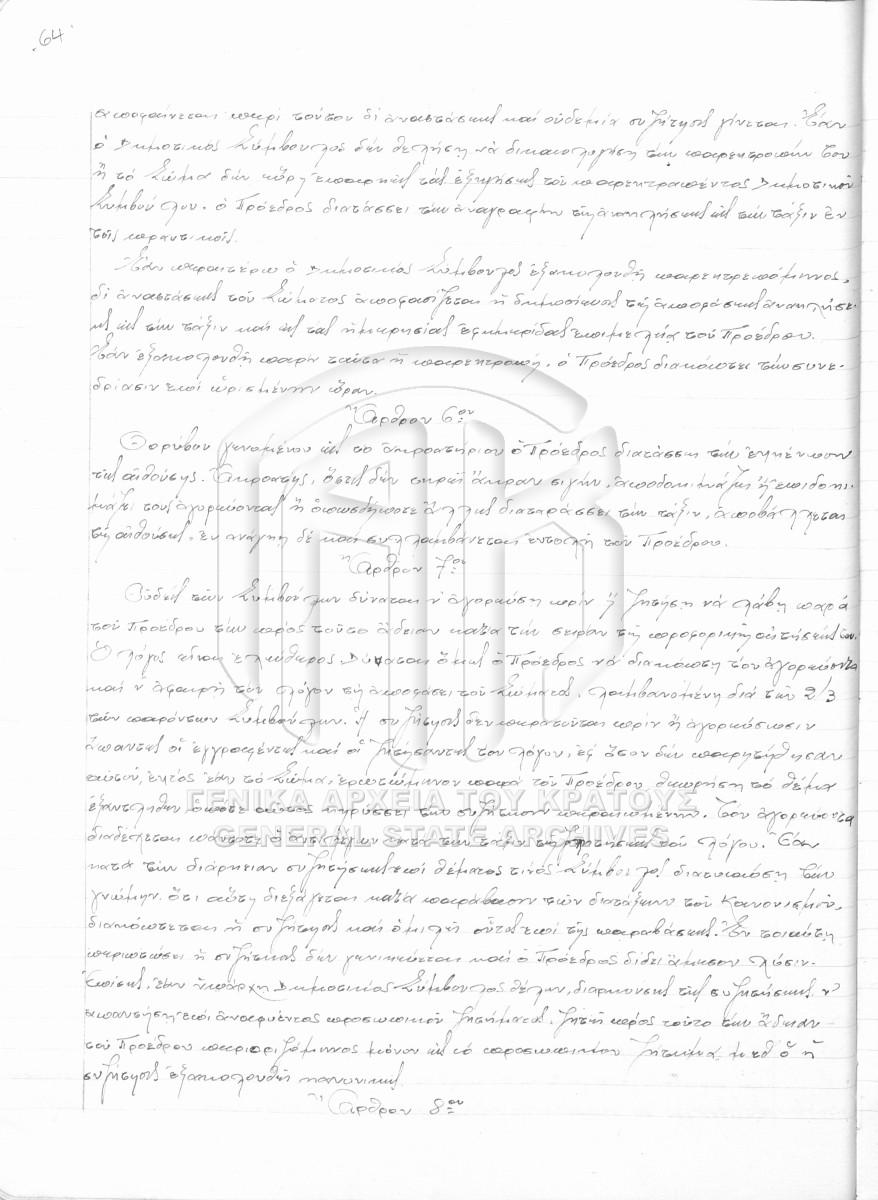 64
αποφαίνεται περί τούτου δι' αναστάσεως καί ουδεμία συζήτησις γίνεται. Εάν
ὁ Δημοτικός Σύμβουλος δέν θελήση νά δικαιολογήση τήν παρεκτροπήν του
ἤ τό Σώμα δέν εὕρη επαρκείς τάς ἐξηγήσεις τοῦ παρεκτραπέντος Δημοτικοῦ
Συμβούλου, ὁ Πρόεδρος διατάσσει τήν ἀναγραφήν τῆς ἀνακλήσεως εἰς τήν τάξιν ἐν
τοῖς πρακτικοῖς.
Ἐάν περαιτέρω ὁ Δημοτικός Σύμβουλος ἐξακολουθῆ παρεκτρεπόμενος,
δι' ἀναστάσεως τοῦ Σώματος ἀποφασίζεται ἡ δημοσίευσις τῆς ἀποφάσεως ἀνακλήσε-
ως εἰς τήν τάξιν καί εἰς τάς ἡμερησίας ἐφημερίδας επιμελεία τοῦ Προέδρου.
Ἐάν ἐξακολουθῆ παρ' ταῦτα ἡ παρεκτροπή, ὁ Πρόεδρος διακόπτει τήν συνε-
δρίασιν επί ὡρισμένην ὥραν.
Ἄρθρον 6ον
Θορύβου γενομένου εἰς το ἀκροατήριον ὁ Πρόεδρος διατάσσει τήν ἐκκένωσιν
τῆς αἰθούσης. Ἀκροατής, ὅστις δέν τηρεῖ ἄκραν σιγήν, αποδοκιμάζει ἤ ἐπιδοκι-
μάζει τους ἀγορεύοντας ἤ ὁπωσδήποτε ἄλλως διαταράσσει τήν τάξιν, ἀποβάλλεται
τῆς αἰθούσης, ἐν ἀνάγκη δέ καί συλλαμβάνεται εντολῆ τοῦ Προέδρου.
Ἄρθρον 7ον
Οὐδείς τῶν Συμβούλων δύναται ν' ἀγορεύση πρίν ἤ ζητήση νά λάβη παρά
τοῦ Προέδρου τήν πρός τοῦτο ἄδειαν κατα τήν σειράν τῆς προφορικῆς αἰτήσεώς του.
Ὁ λόγος εἶναι ἐλεύθερος. Δύναται ὅμως ὁ Πρόεδρος νά διακόπτη τον ἀγορεύοντα
καί ν' ἀφαιρῆ τόν λόγον τῆ ἀποφάσει τοῦ Σώματος, λαμβανομένη διά τῶν 2/3
τῶν παρόντων Συμβούλων. Ἡ συζήτησις δέν περατοῦται πρίν ἤ ἀγορεύσωσιν
ἅπαντες οἱ ἐγγραφέντες καί οἱ ζητήσαντες τον λόγον, ἐφ' ὅσον δέν παρητήθησαν
αὐτοῦ, ἐκτός ἐάν τό Σώμα, ἐρωτώμενον παρά τοῦ Προέδρου θεωρήση τό θέμα
ἐξαντληθέν οπότε οὗτος κηρύσσει τήν συζήτησιν περαιωμένην. Τον ἀγορεύοντα
διαδέχεται πάντοτε ὁ ἀντιλέγων κατα τήν τάξιν τῆς ζητήσεως τοῦ λόγου. Ἐάν
κατά τήν διάρκειαν συζητήσεως επί θέματος τινός Σύμβουλος διατυπώση τήν
γνώμην ὅτι αὕτη διεξάγεται κατά παράβασιν τῶν διατάξεων τοῦ Κανονισμοῦ,
διακόπτεται ἡ συζήτησις καί ὁμιλεῖ οὗτος επί τῆς παραβάσεως. Ἐν τοιαύτη
περιπτώσει ἡ συζήτησις δέν γενικεύεται καί ὁ Πρόεδρος δίδει ἄμεσον λύσιν.
Επίσης, ἐάν ὑπάρχη Δημοτικός Σύμβουλος θέλων, διαρκούσης τῆς συζητήσεως ν'
απαντήση επί ἀναφυέντος προσωπικοῦ ζητήματος, ζητεῖ πρός τοῦτο τήν ἄδειαν
τοῦ Προέδρου περιοριζόμενος μόνον εἰς τό προσωπικόν ζήτημα, μεθ' ὅ ἡ
συζήτησις ἐξακολουθεῖ κανονικῶς.
Ἄρθρον 8ον
ΓΕΝΙΚΑ ΑΡΧΕΙΑ ΤΟΥ ΚΡΑΤΟΥΣ
GENERAL STATE ARCHIVES